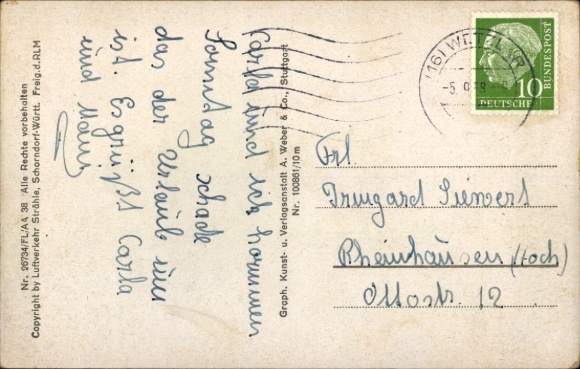 Nr. 26734/FL/A4 38 Alle Rechte vorbehalten
Copyright by Luftverkehr Strähle, Schorndorf-Württ. Freig.d.RLM
Carla und ich kommen
Sonntag schade
das der Urlaub um
ist. Es grüßt Carla
und
Graph. Kunst- u. Verlagsanstalt A. Weber & Co., Stuttgart
Nr. 100861/10 m
(16) WETZLAR
DEUTSCHE
BUNDESPOST
10
Frl.
Irmgard Siewert
Rheinhausen (Hoch)
Ottostr. 12